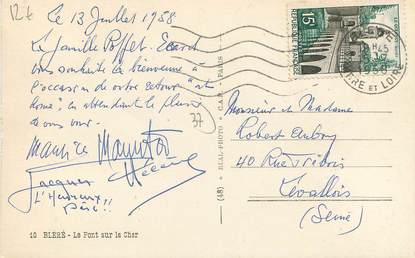 12€
Le 13 Juillet 1958
La famille Poffet-Ecard
vous souhaite la bienvenue à
l'occasion de votre retour "at
home"; en attendant le plaisir
de vous voir.
Maurice
Hélène
Jacques
L'Heureux
Père!!
37
10 BLERÉ - Le Pont sur le Cher
(48) * REAL-PHOTO * C.A.P. * PARIS *
15F
REPUBLIQUE FRANÇAISE
ET LOIRE
Monsieur et Madame
Robert
40 Rue
Levallois
(Seine)